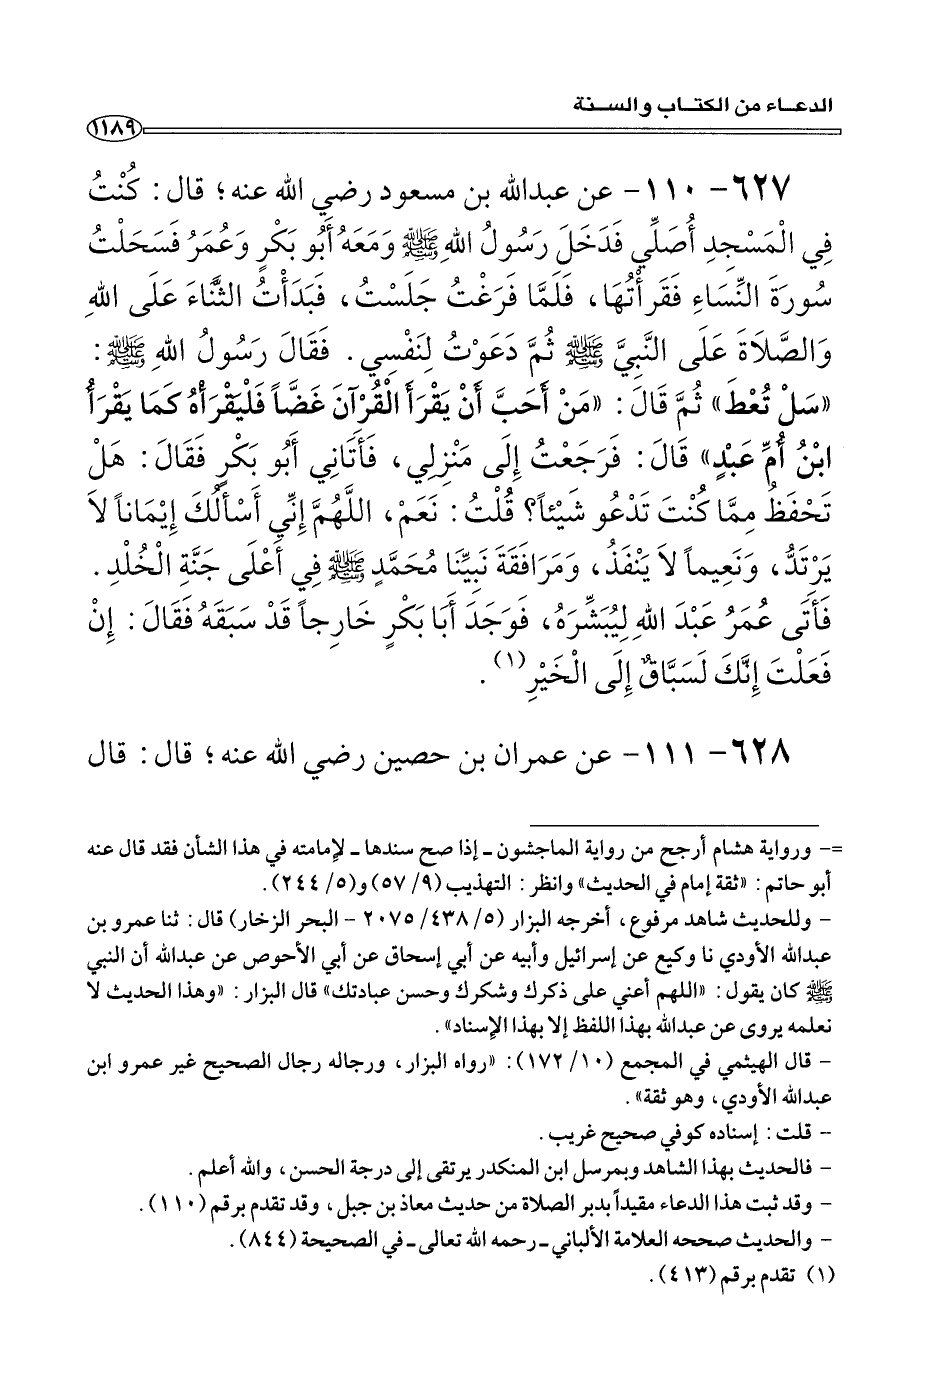 الدعـاء من الكتـاب والسـنة
١١٨٩
٦٢٧- ١١٠- عن عبدالله بن مسعود رضي الله عنه؛ قال: كُنْتُ
فِي الْمَسْجِدِ أُصَلِّي فَدَخَلَ رَسُولُ اللهِ ﷺ وَمَعَهُ أَبُو بَكْرٍ وَعُمَرُ فَسَحَلْتُ
سُورَةَ النِّسَاءِ فَقَرأْتُهَا، فَلَمَّا فَرَغْتُ جَلَسْتُ، فَبَدَأْتُ الثَّنَاءَ عَلَى اللهِ
وَالصَّلَاةَ عَلَى النَّبِيِّ ﷺ ثُمَّ دَعَوْتُ لِنَفْسِي. فَقَالَ رَسُولُ اللهِ ﷺ:
«سَلْ تُعْطَ» ثُمَّ قَالَ: «مَنْ أَحَبَّ أَنْ يَقْرَأَ الْقُرْآنَ غَضّاً فَلْيَقْرَأْهُ كَمَا يَقْرَأُ
ابْنُ أُمِّ عَبْدٍ» قَالَ: فَرَجَعْتُ إِلَى مَنْزِلِي، فَأَتَانِي أَبُو بَكْرٍ فَقَالَ: هَلْ
تَحْفَظُ مِمَّا كُنْتَ تَدْعُو شَيْئاً؟ قُلْتُ: نَعَمْ، اللَّهُمَّ إِنِّي أَسْأَلُكَ إِيْمَاناً لاَ
يَرْتَدُّ، وَنَعِيماً لاَ يَنْفَذُ، وَمَرَافَقَةَ نَبِيِّنَا مُحَمَّدٍ ﷺ فِي أَعْلَى جَنَّةِ الْخُلْدِ.
فَأَتَى عُمَرُ عَبْدَ اللهِ لِيُبَشِّرَهُ، فَوَجَدَ أَبَا بَكْرٍ خَارِجاً قَدْ سَبَقَهُ فَقَالَ: إِنْ
فَعَلْتَ إِنَّكَ لَسَبَّاقٌ إِلَى الْخَيْرِ(١).
٦٢٨- ١١١- عن عمران بن حصين رضي الله عنه؛ قال: قال
=- ورواية هشام أرجح من رواية الماجشون ـ إذا صح سندها ـ لإمامته في هذا الشأن فقد قال عنه
أبو حاتم: «ثقة إمام في الحديث» وانظر: التهذيب (٩/ ٥٧) و(٥/ ٢٤٤).
- وللحديث شاهد مرفوع، أخرجه البزار (٥/ ٤٣٨/ ٢٠٧٥ - البحر الزخار) قال: ثنا عمرو بن
عبدالله الأودي نا وكيع عن إسرائيل وأبيه عن أبي إسحاق عن أبي الأحوص عن عبدالله أن النبي
ﷺ كان يقول: «اللهم أعني على ذكرك وشكرك وحسن عبادتك» قال البزار: «وهذا الحديث لا
نعلمه يروى عن عبدالله بهذا اللفظ إلا بهذا الإسناد».
- قال الهيثمي في المجمع (١٠/ ١٧٢): «رواه البزار، ورجاله رجال الصحيح غير عمرو ابن
عبدالله الأودي، وهو ثقة».
- قلت: إسناده كوفي صحيح غريب.
- فالحديث بهذا الشاهد وبمرسل ابن المنكدر يرتقى إلى درجة الحسن، والله أعلم.
- وقد ثبت هذا الدعاء مقيداً بدبر الصلاة من حديث معاذ بن جبل، وقد تقدم برقم (١١٠).
- والحديث صححه العلامة الألباني ـ رحمه الله تعالى ـ في الصحيحة (٨٤٤).
(١) تقدم برقم (٤١٣).